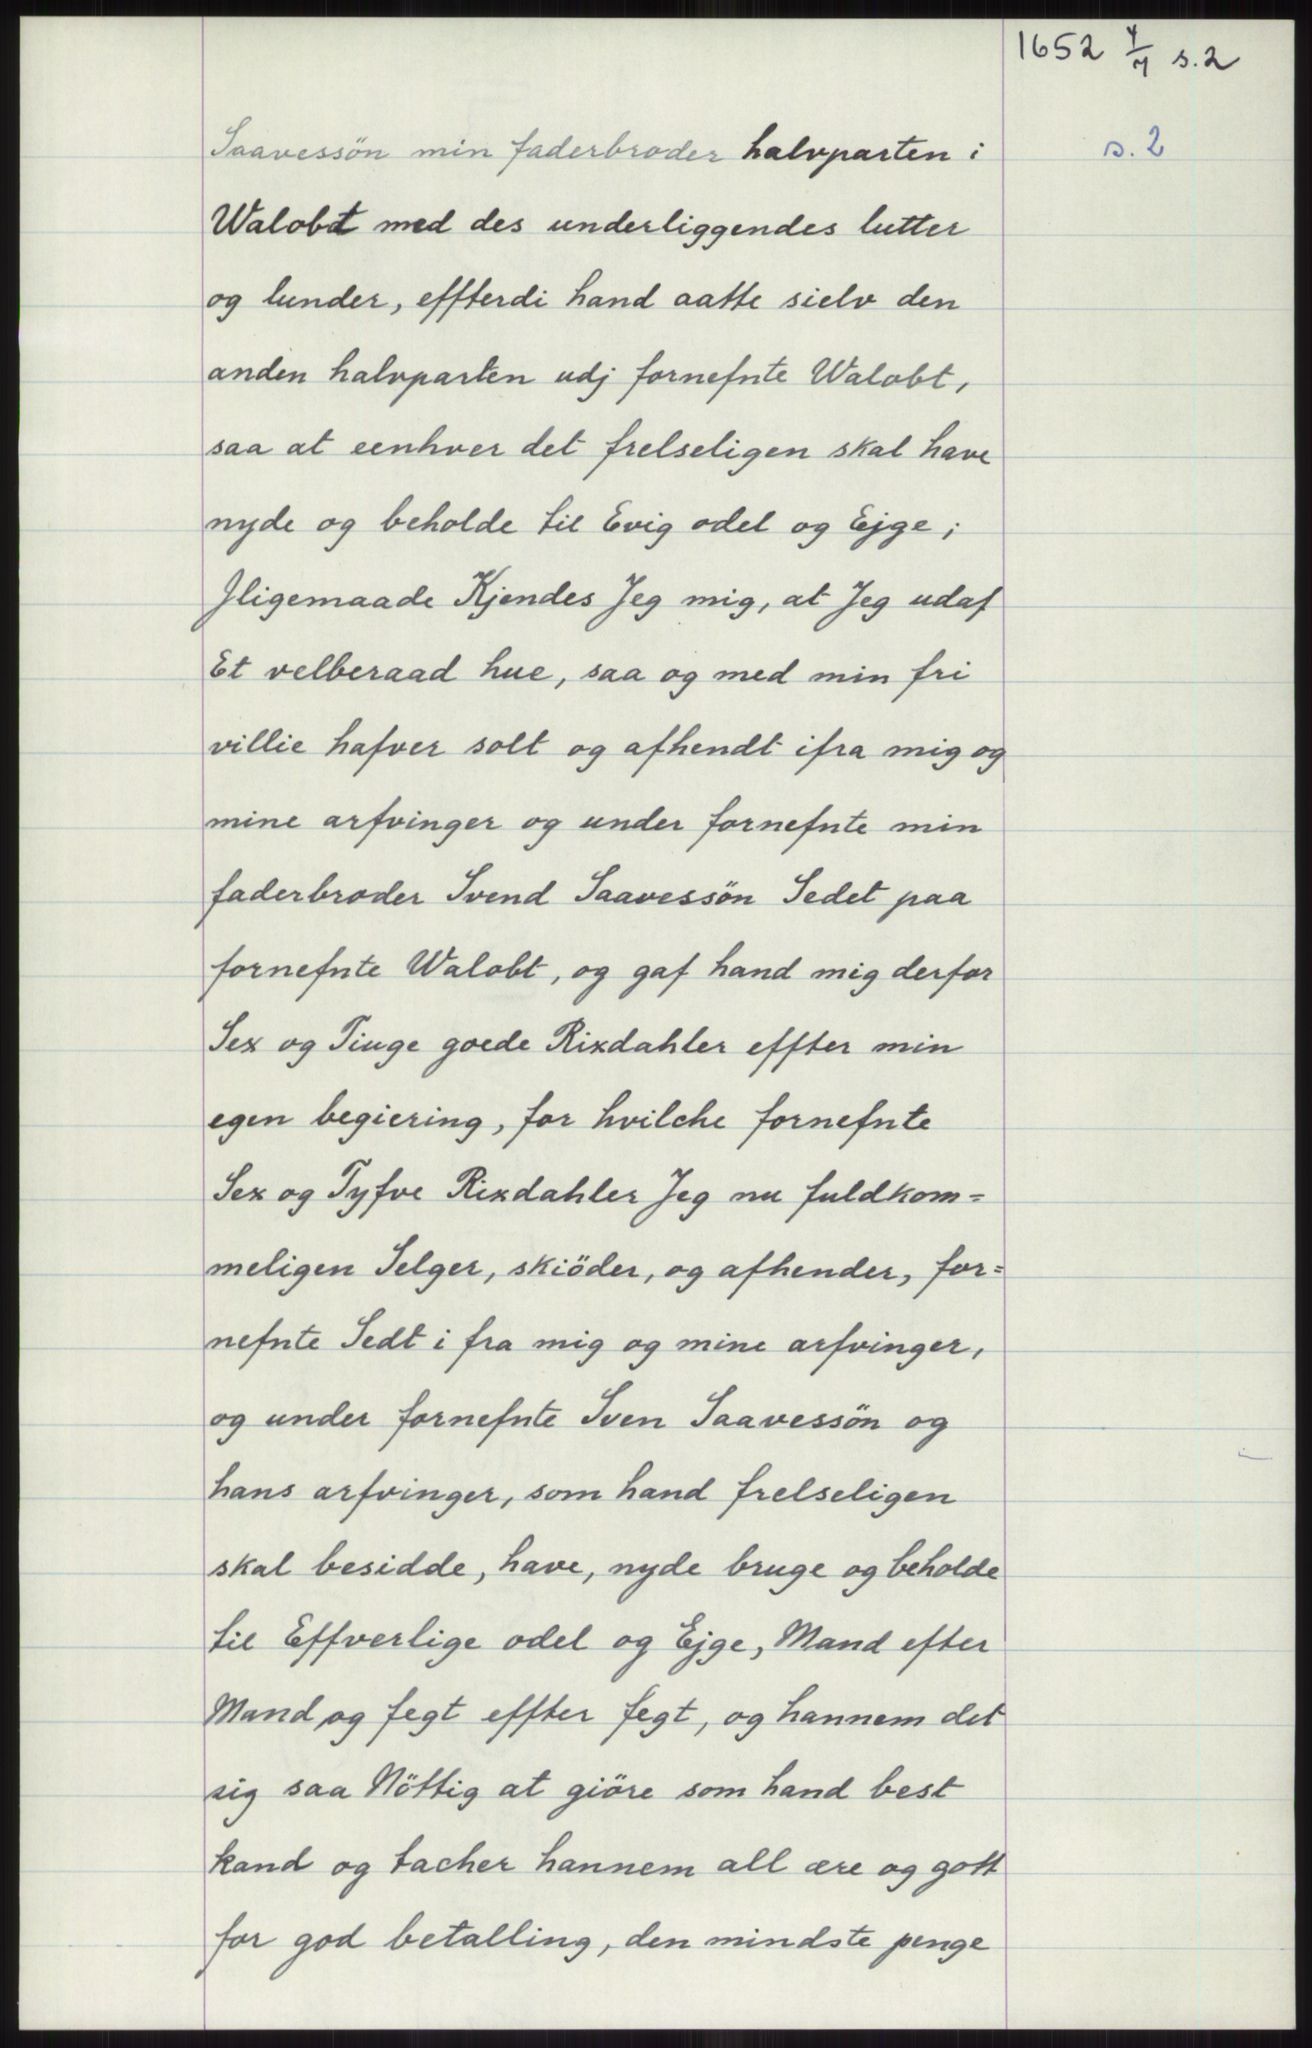 1652 4/7 s.2
s. 2
Saavessön min faderbroder halvparten i
Walobt med des underliggendes lutter
og lunder, effterdi hand aatte sielv den
anden halvparten udj fornefnte Walobt,
saa at eenhver det frelseligen skal have
nyde og beholde til Evig odel og Ejge;
Jligemaade Kjendes Jeg mig, at Jeg udaf
Et velberaad hue, saa og med min fri
villie hafver solt og afhendt ifra mig og
mine arfvinger og under fornefnte min
faderbroder Svend Saavessön Sedet paa
fornefnte Walobt, og gaf hand mig derfor
Sex og Tiuge goede Rixdahler effter min
egen begiering, for hvilche fornefnte
Sex og Tyfve Rixdahler Jeg nu fuldkom=
meligen Selger, skiöder, og afhender, for=
nefnte Sedt i fra mig og mine arfvinger,
og under fornefnte Sven Saavessön og
hans arfvinger, som hand frelseligen
skal besidde, have, nyde bruge og beholde
til Effverlige odel og Ejge, Mand efter
Mand og fegt effter fegt, og hannem det
sig saa Nöttig at giöre som hand best
kand og tacher hannem all ære og gott
for god betalling, den mindste penge